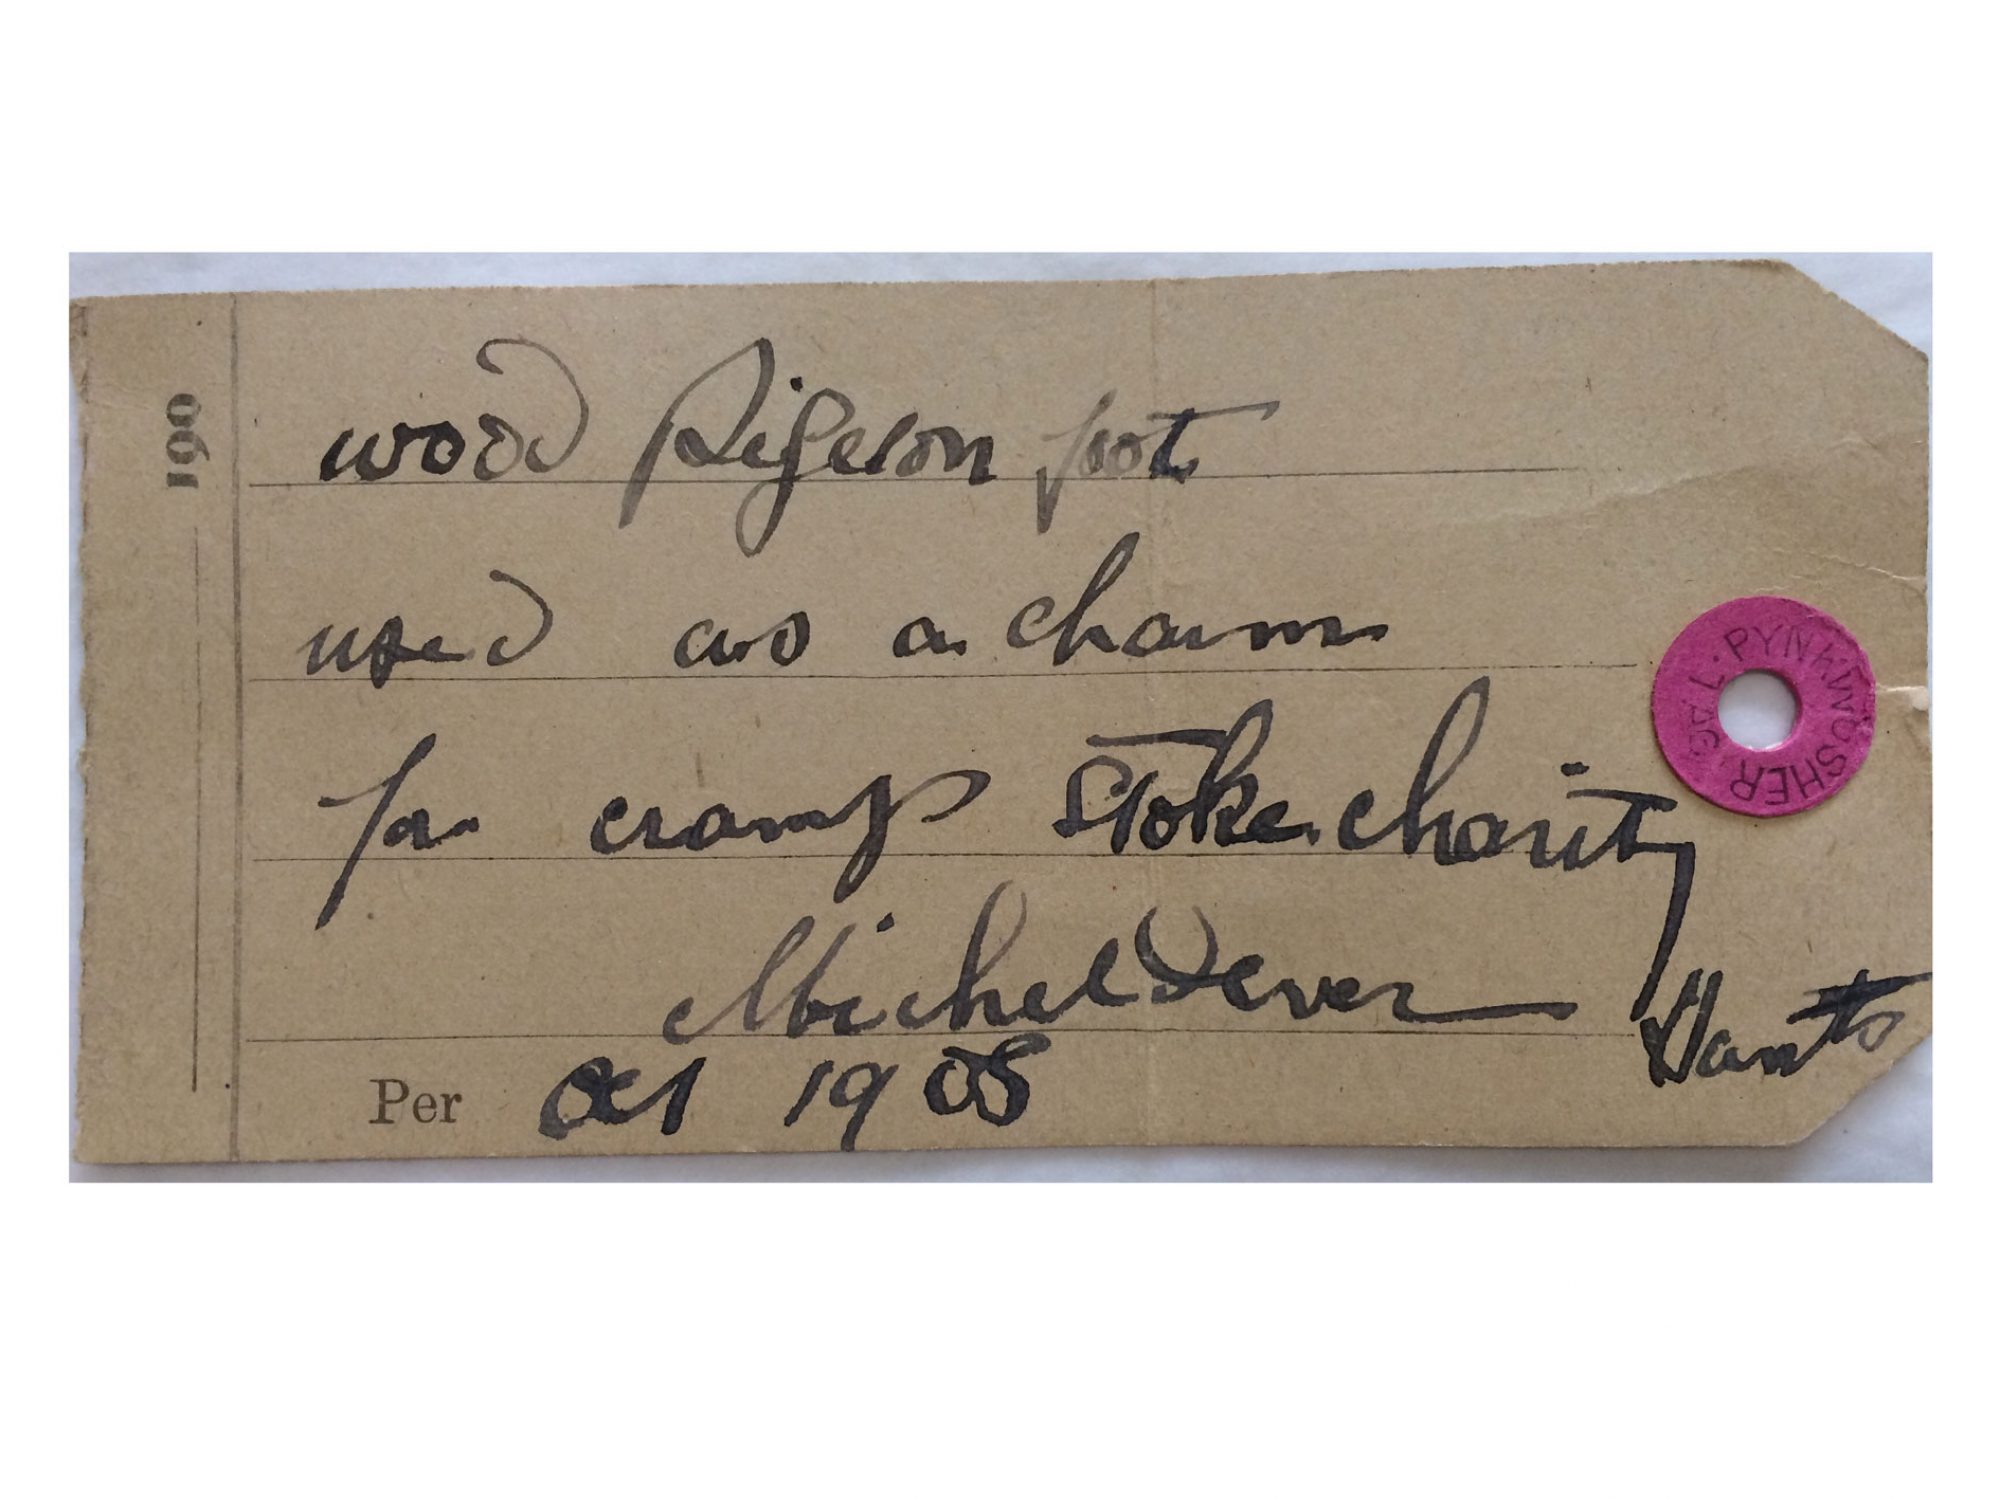 190
wood Pigeon foot
used as a charm
for cramp Stoke Charity
Micheldever
Hants
Per Oct 1908
PYNKWOSHER